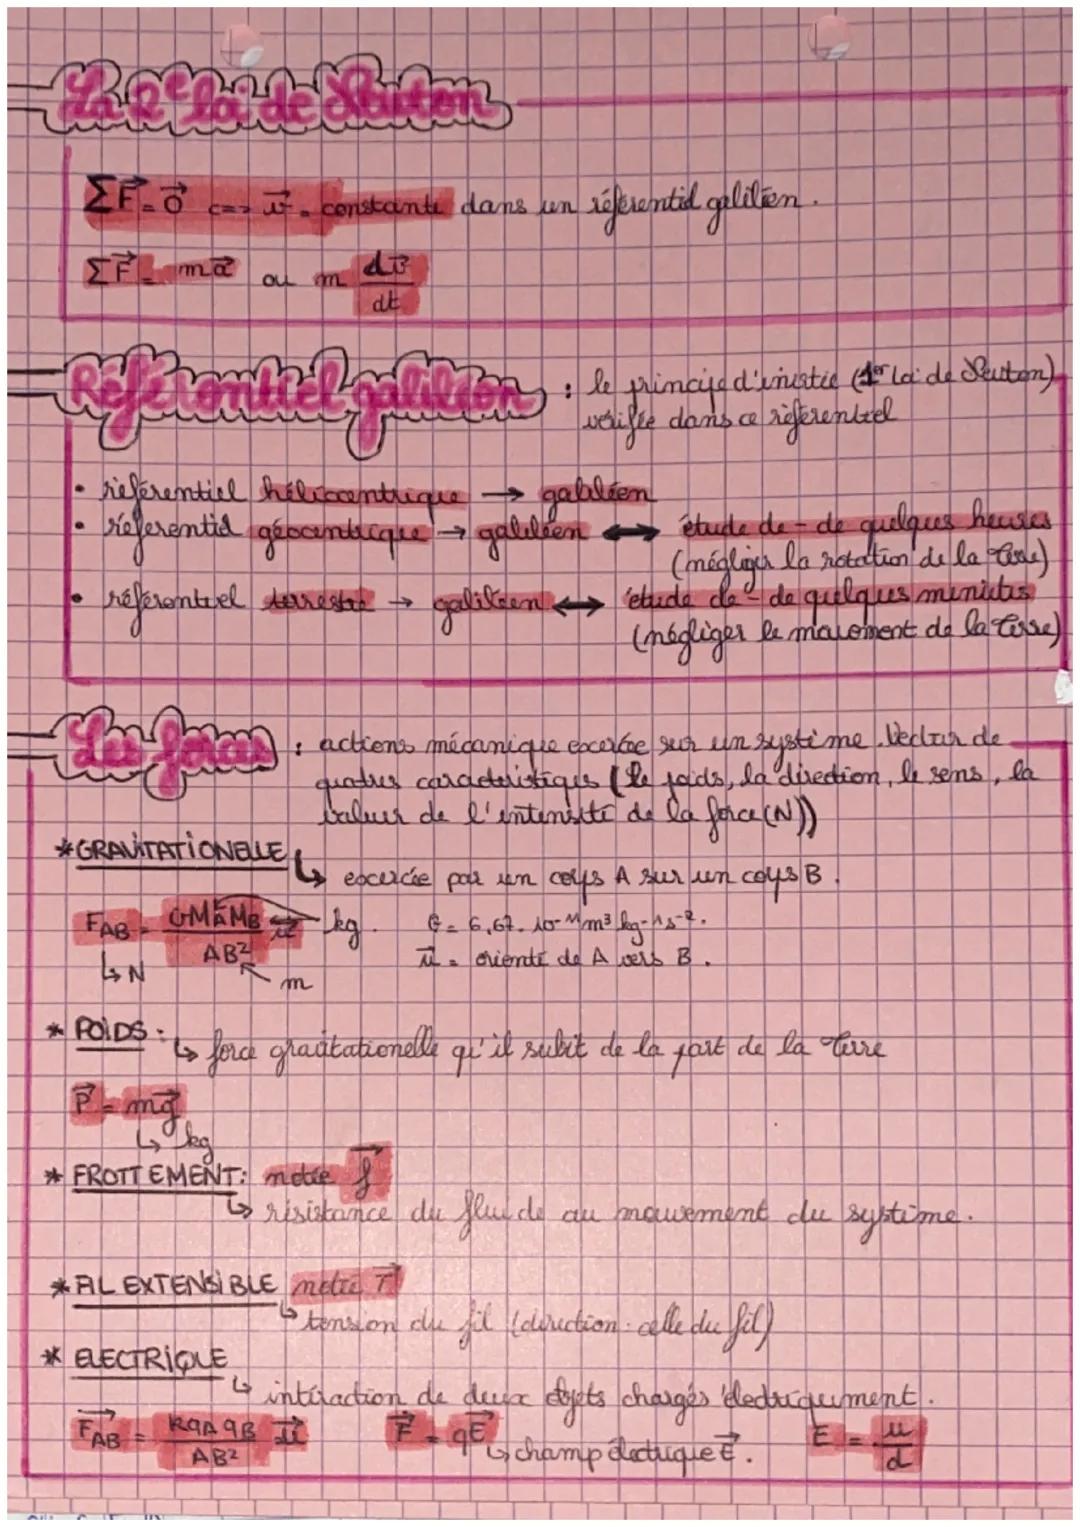 La 2e loi de Newton
ΣF⃗ = 0⃗ <=> v⃗ = constante dans un référentiel galiléen.
ΣF⃗ = ma⃗ ou m dv⃗/dt
Référentiel galiléen : le principe d'inertie (1er loi de Newton)
vérifié dans ce référentiel
• référentiel héliocentrique → galiléen
• référentiel géocentrique → galiléen ↔ étude de - de quelques heures
(négliger la rotation de la Terre)
• référentiel terrestre → galiléen ↔ étude de - de quelques minutes
(négliger le mouvement de la Terre)
Les forces : actions mécanique excercée sur un système. Vecteur de
quatres caractéristiques (le poids, la direction, le sens, la
valeur de l'intensité de la force (N))
* GRAVITATIONELLE
↳ excercée par un corps A sur un corps B.
FAB = GMAMB/AB² u⃗ → kg. G = 6,67. 10-11 m³ kg-1 s-2.
↳ N m u⃗ = orienté de A vers B.
* POIDS :
↳ force gravitationelle qu'il subit de la part de la Terre
P⃗ = mg⃗
↳ kg
* FROTTEMENT: notée f⃗
↳ résistance du fluide au mouvement du système.
* FIL EXTENSIBLE notée T⃗
↳ tension du fil (direction: celle du fil)
* ELECTRIQUE
↳ intéraction de deux objets chargés électriquement.
F⃗AB = KqAqB/AB² u⃗ F⃗ = qE⃗ ↳ champ électrique E⃗. E = u/d